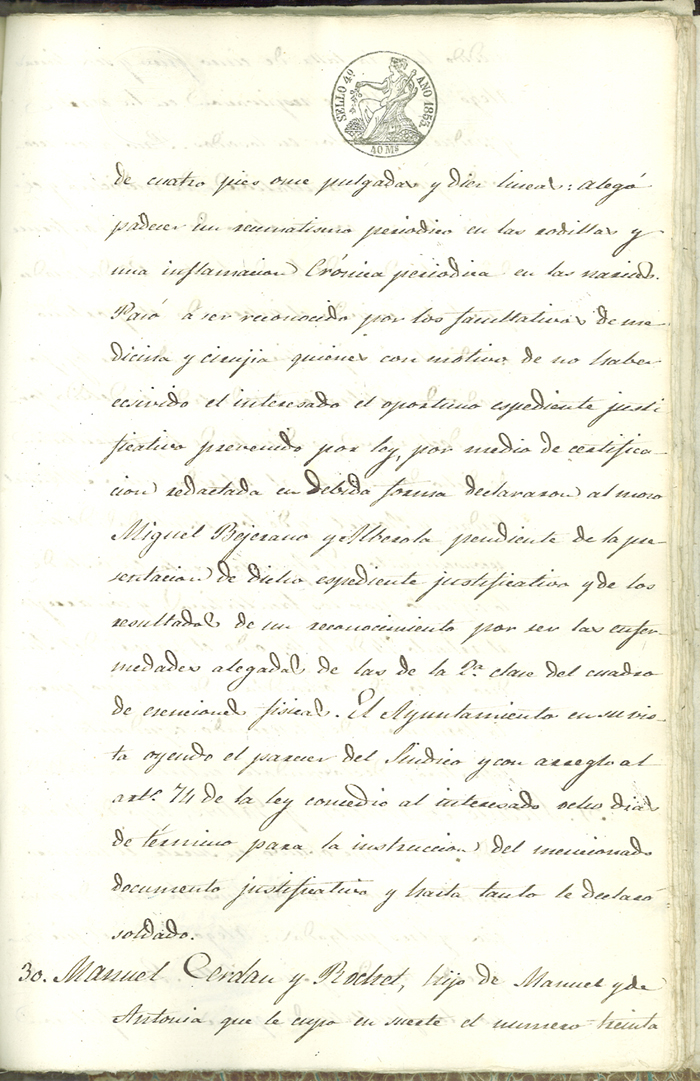 SELLO 4º AÑO 1855.
40 Ms
de cuatro pies once pulgadas y diez lineas: alegó
padecer un reumatismo periodico en las rodillas y
una inflamacion Crónica periodica en las narices.
Pasó a ser reconocido por los facultativos de me
dicina y cirujia quienes con motivo de no haber
ecsivido el interesado el oportuno espediente justi
ficativo prevenido por ley, por medio de certifica-
cion redactada en debida forma declararon al mozo
Miguel Bejerano y Alberola pendiente de la pre
sentacion de dicho espediente justificativo y de los
resultados de un reconocimiento por ser las enfer-
medades alegadas de las de la 2ª clase del cuadro
de esenciones fisicas. El Ayuntamiento en su vis-
ta oyendo el parecer del Sindico y con arreglo al
artº 74 de la ley concedio al interesado ocho dias
de término para la instruccion del mencionado
documento justificativo y hasta tanto le declaró
soldado.
30. Manuel Cerdan y Rochet, hijo de Manuel y de
Antonia que le cupo en suerte el numero treinta